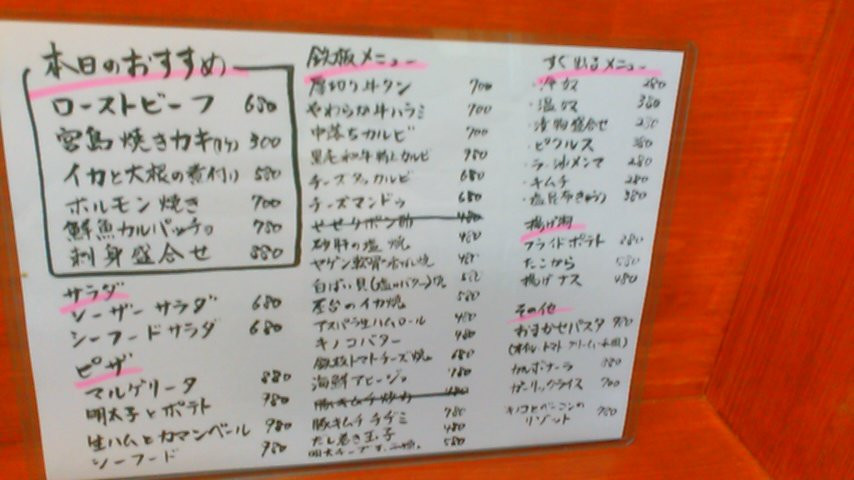 本日のおすすめ
ローストビーフ 680
宮島焼きカキ(1ケ) 300
イカと大根の煮付け 580
ホルモン焼き 700
鮮魚カルパッチョ 780
刺身盛合せ 880
サラダ
シーザーサラダ 680
シーフードサラダ 680
ピザ
マルゲリータ 880
明太子とポテト 980
生ハムとカマンベール 980
シーフード 980
鉄板メニュー
厚切り牛タン 700
やわらか牛ハラミ 700
中落ちカルビ 700
黒毛和牛特上カルビ 980
チーズタッカルビ 680
チーズマンドゥ 680
せせりポン酢 480
砂肝の塩焼 480
ヤゲン軟骨 焼 480
白ばい貝(塩orバター)
屋台のイカ焼 580
アスパラ生ハムロール 480
キノコバター 480
鉄板トマトチーズ焼
海鮮アヒージョ 780
豚キムチ 480
豚キムチチヂミ 780
だし巻き玉子 480
明太チーズ 580
すぐ出るメニュー
・冷奴 280
・温奴 380
・漬物盛合せ
・ピクルス 380
・ラー油メンマ 280
・キムチ 280
・塩昆布きゅうり 380
揚げ物
フライドポテト 380
たこから 580
揚げナス 480
その他
おまかせパスタ 980
カルボナーラ 880
ガーリックライス 700
キノコとベーコンの
リゾット 780